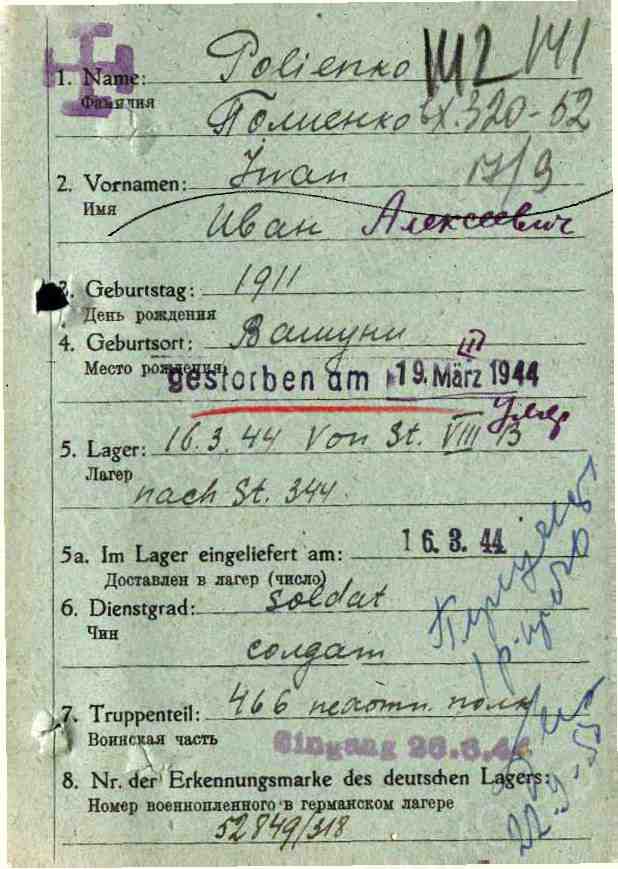 1. Name: Polienko 1112 141
Фамилия Полиенко вх.320-52
2. Vornamen: Iwan 17/9
Имя Иван Алексеевич
3. Geburtstag: 1911
День рождения
4. Geburtsort: Вашуни
Место рождения
gestorben am 19. März 1944
III
умер
5. Lager: 16.3.44 Von St. VIII B
Лагерь nach St. 344.
5a. Im Lager eingeliefert am: 16.3.44
Доставлен в лагерь (число)
6. Dienstgrad: soldat
Чин солдат
7. Truppenteil: 466 пехотн. полк
Воинская часть Eingang
8. Nr. der Erkennungsmarke des deutschen Lagers:
Номер военнопленного в германском лагере
52849/318